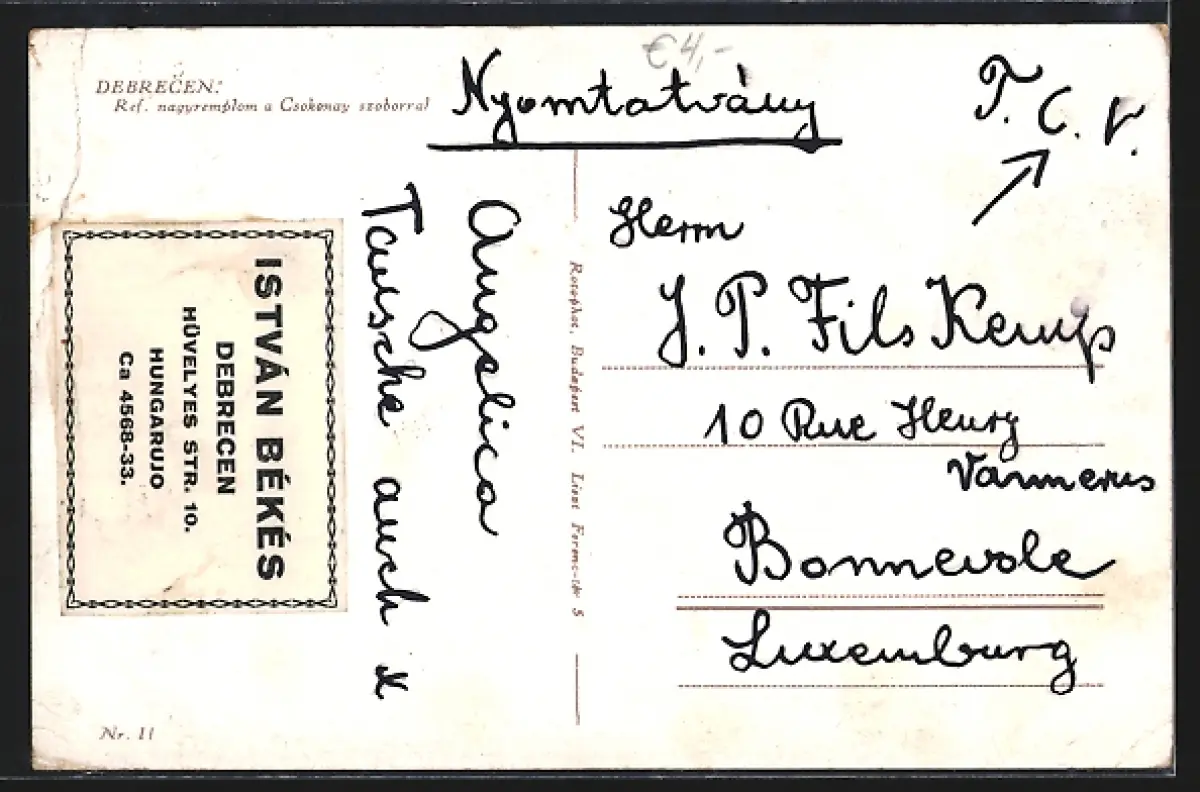 €4,-
DEBRECEN:
Ref. nagyremplom a Csokonay szoborral
Nyomtatvány
T. C. V.
Herrn
J. P. Fils Kemp
10 Rue Henry
Vannerus
Bonnevole
Luxemburg
Angelica
Tausche auch
ISTVÁN BÉKÉS
DEBRECEN
HÜVELYES STR. 10.
HUNGARUJO
Ca 4568-33.
Rotophot, Budapest VI. Liszt Ferenc-tér 5
Nr. 11